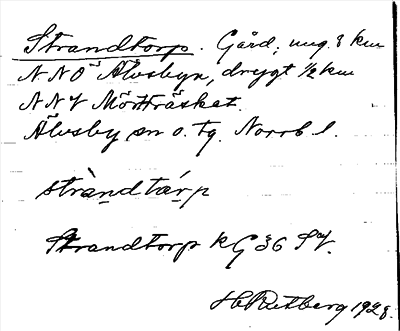 Strandtorp. Gård, ung. 8 km
NNO Älvsbyn, drygt ½ km
NNV Mörtträsket.
Älvsby sn o. tg. Norrb l.
stràndtár̲p
Strandtorp k G 36 SV.
H Rutberg 1928.